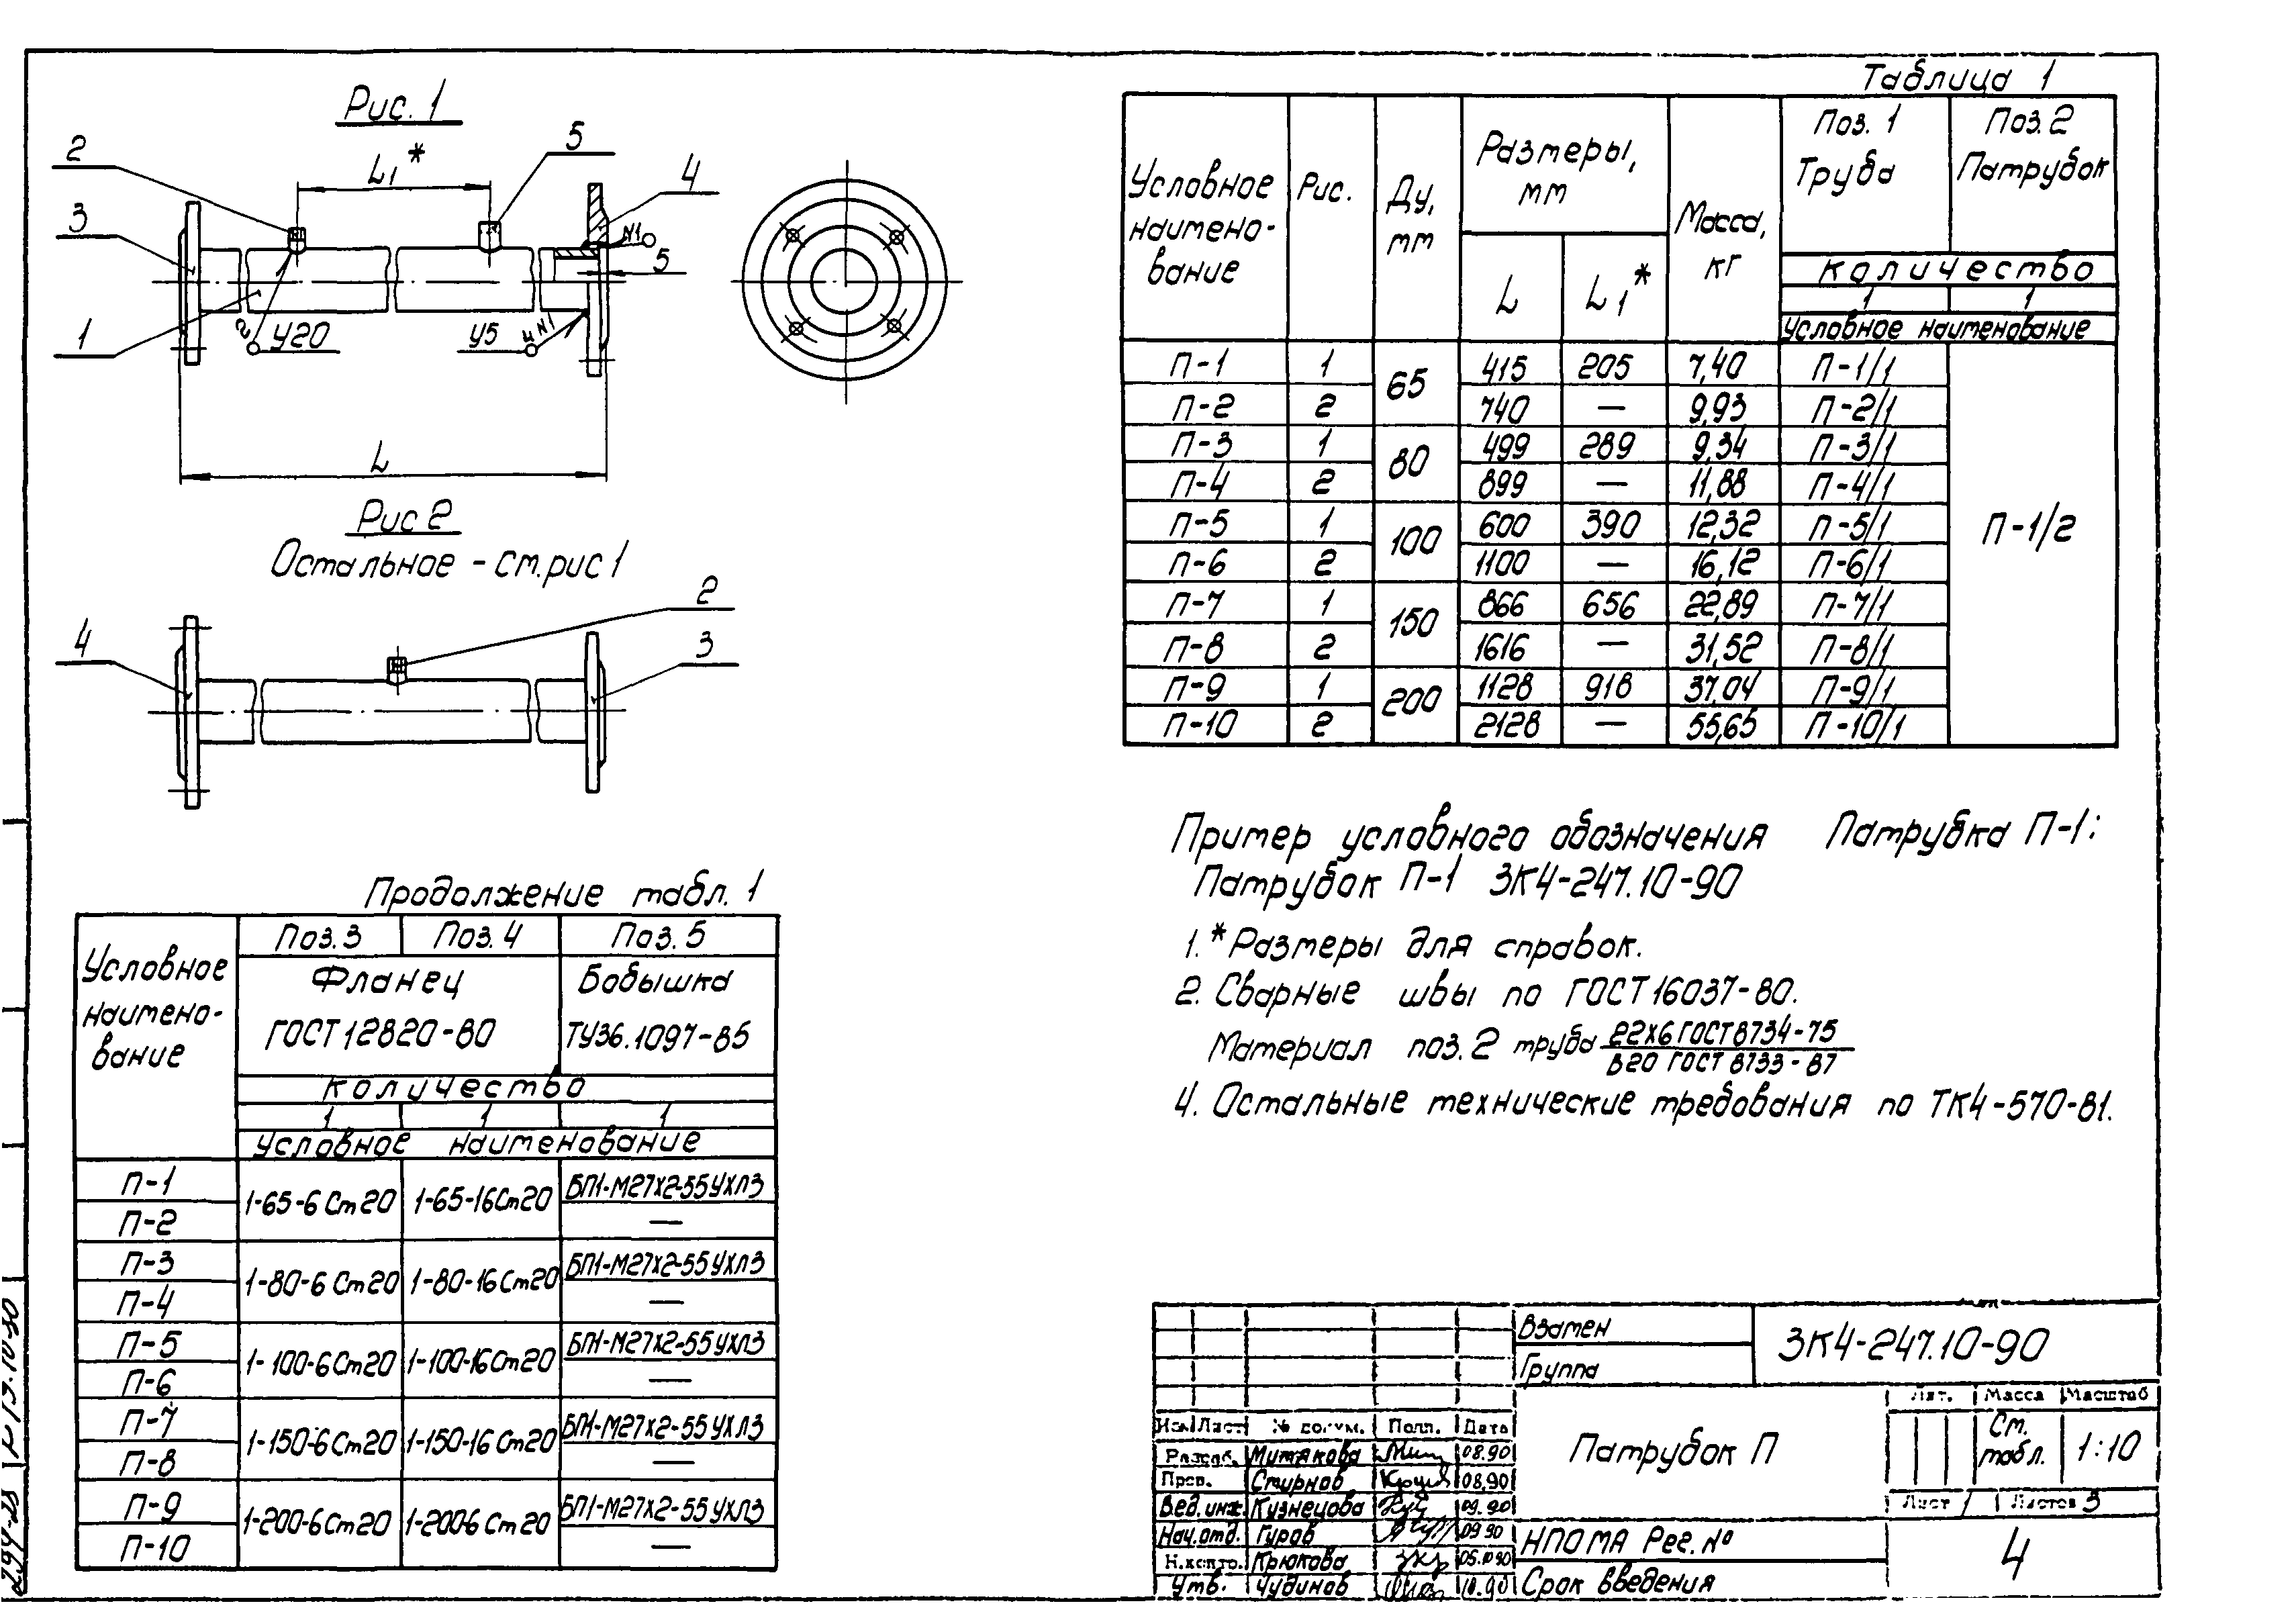 Рис. 1
2
L₁*
5
4
3
N1
5
1
2
У20
У5
4 N1
L
Рис 2
Остальное - см. рис 1
2
4
3
Таблица 1
Условное наимено-вание
Рис.
Ду, мм
Размеры, мм
L
L₁*
Масса, кг
Поз. 1 Труба
Поз. 2 Патрубок
Количество
1 1
Условное наименование
П-1 1 65 415 205 7,40 П-1/1 П-1/2
П-2 2 740 — 9,93 П-2/1
П-3 1 80 499 289 9,34 П-3/1
П-4 2 899 — 11,88 П-4/1
П-5 1 100 600 390 12,32 П-5/1
П-6 2 1100 — 16,12 П-6/1
П-7 1 150 866 656 22,89 П-7/1
П-8 2 1616 — 31,52 П-8/1
П-9 1 200 1128 918 37,04 П-9/1
П-10 2 2128 — 55,65 П-10/1
Пример условного обозначения Патрубка П-1:
Патрубок П-1 ЗК4-247.10-90
1. * Размеры для справок.
2. Сварные швы по ГОСТ 16037-80.
Материал поз. 2 труба 22х6 ГОСТ 8734-75
В20 ГОСТ 8733-87
4. Остальные технические требования по ТК4-570-81.
Продолжение табл. 1
Условное наимено-вание
Поз. 3 Поз. 4 Поз. 5
Фланец Бобышка
ГОСТ 12820-80 ТУ36.1097-85
Количество
1 1 1
Условное наименование
П-1 1-65-6 Ст20 1-65-16 Ст20 БП1-М27х2-55 УХЛ3
П-2 —
П-3 1-80-6 Ст20 1-80-16 Ст20 БП1-М27х2-55 УХЛ3
П-4 —
П-5 1-100-6 Ст20 1-100-16 Ст20 БП1-М27х2-55 УХЛ3
П-6 —
П-7 1-150-6 Ст20 1-150-16 Ст20 БП1-М27х2-55 УХЛ3
П-8 —
П-9 1-200-6 Ст20 1-2006 Ст20 БП1-М27х2-55 УХЛ3
П-10 —
Взамен
Группа
ЗК4-247.10-90
Изм Лист № докум. Подп. Дата
Разраб. Митякова 08.90
Пров. Смирнов 08.90
Вед. инж. Кузнецова 09.90
Нач. отд. Гуров 09 90
Н.контр. Крюкова 05.10 90
Утв. Чудинов 10.90
Патрубок П
Лит. Масса Масштаб
См. табл. 1:10
Лист 1 Листов 3
НПОМА Рег. №
Срок введения
4